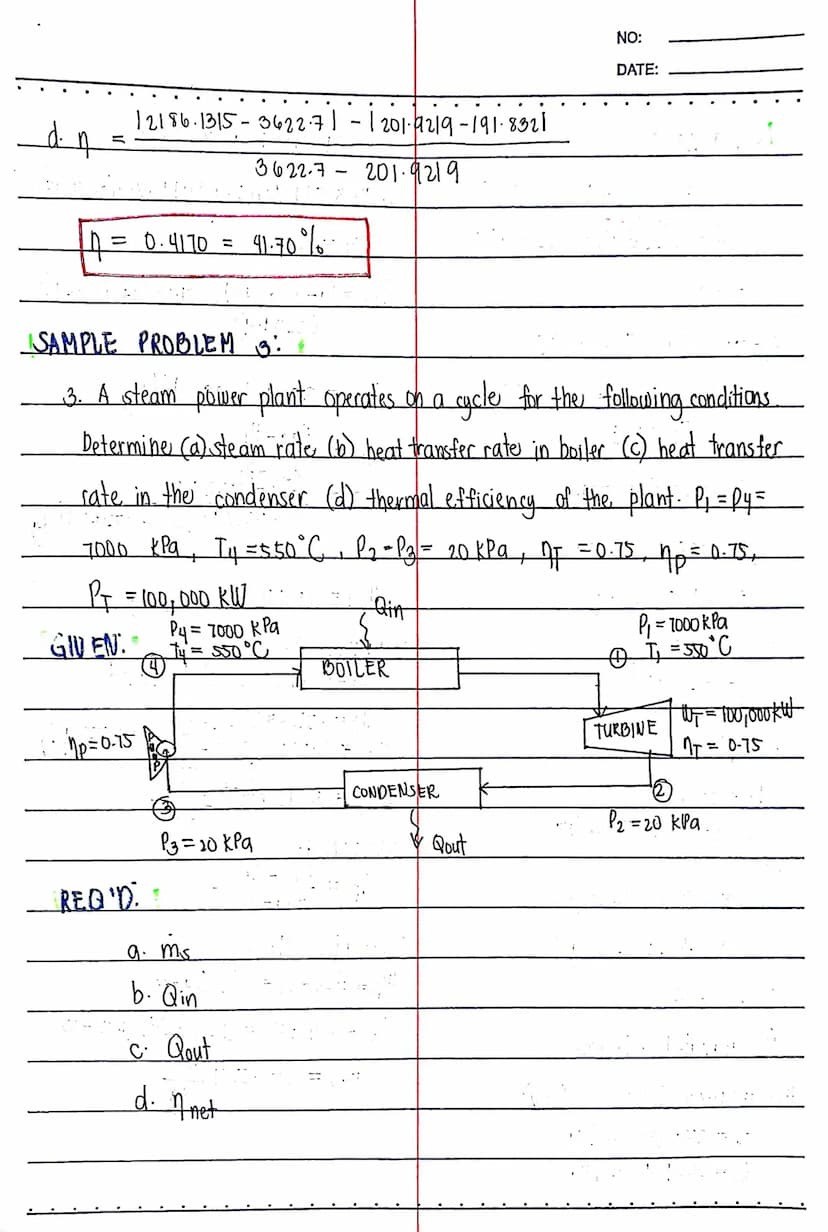 NO:
DATE:
d. η = |2186.1315 - 3622.7| - |201.9219 - 191.832|
3622.7 - 201.9219
η = 0.4170 = 41.70%
SAMPLE PROBLEM 3:
3. A steam power plant operates on a cycle for the following conditions.
Determine (a) steam rate (b) heat transfer rate in boiler (c) heat transfer
rate in the condenser (d) thermal efficiency of the plant. P1 = P4 =
7000 kPa, T4 = 550°C, P2 = P3 = 20 kPa, ηT = 0.75, ηp = 0.75,
PT = 100,000 KW
GIVEN:
P4 = 7000 KPa
T4 = 550°C
Qin
P1 = 7000 kPa
T1 = 550°C
④
BOILER
①
ηp = 0.75
PUMP
TURBINE
WT = 100,000 kW
ηT = 0.75
CONDENSER
③
②
P3 = 20 kPa
Qout
P2 = 20 kPa
REQ'D:
a. ṁs
b. Qin
c. Qout
d. ηnet